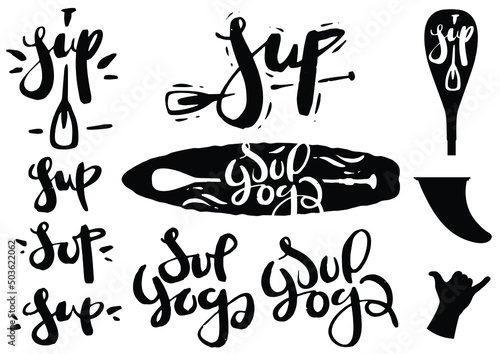 Sup
Sup
Sup
Sup
Sup
Sup
Sup
Yoga
Sup
Yoga
Sup
Yoga
Adobe Stock | #503622062